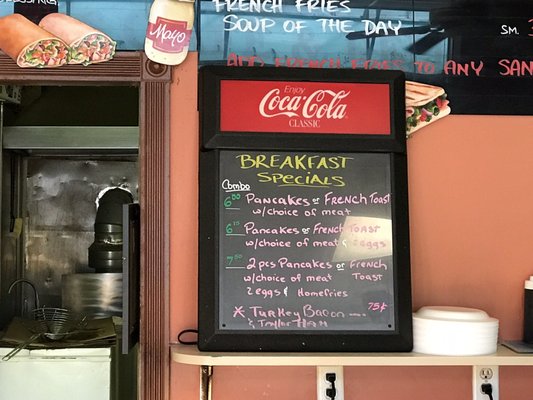 FRENCH FRIES
SOUP OF THE DAY
SM.
TO ANY SAN
Mayo
Enjoy
Coca-Cola
CLASSIC
BREAKFAST
SPECIALS
Combo
6.50 PANCAKES or FRENCH TOAST
w/choice of meat
6.75 PANCAKES or FRENCH TOAST
w/choice of meat & 2eggs
7.50 2 pcs PANCAKES or FRENCH
w/choice of meat TOAST
2eggs & Homefries
* TURKEY BACON 75¢
& TAYLOR HAM